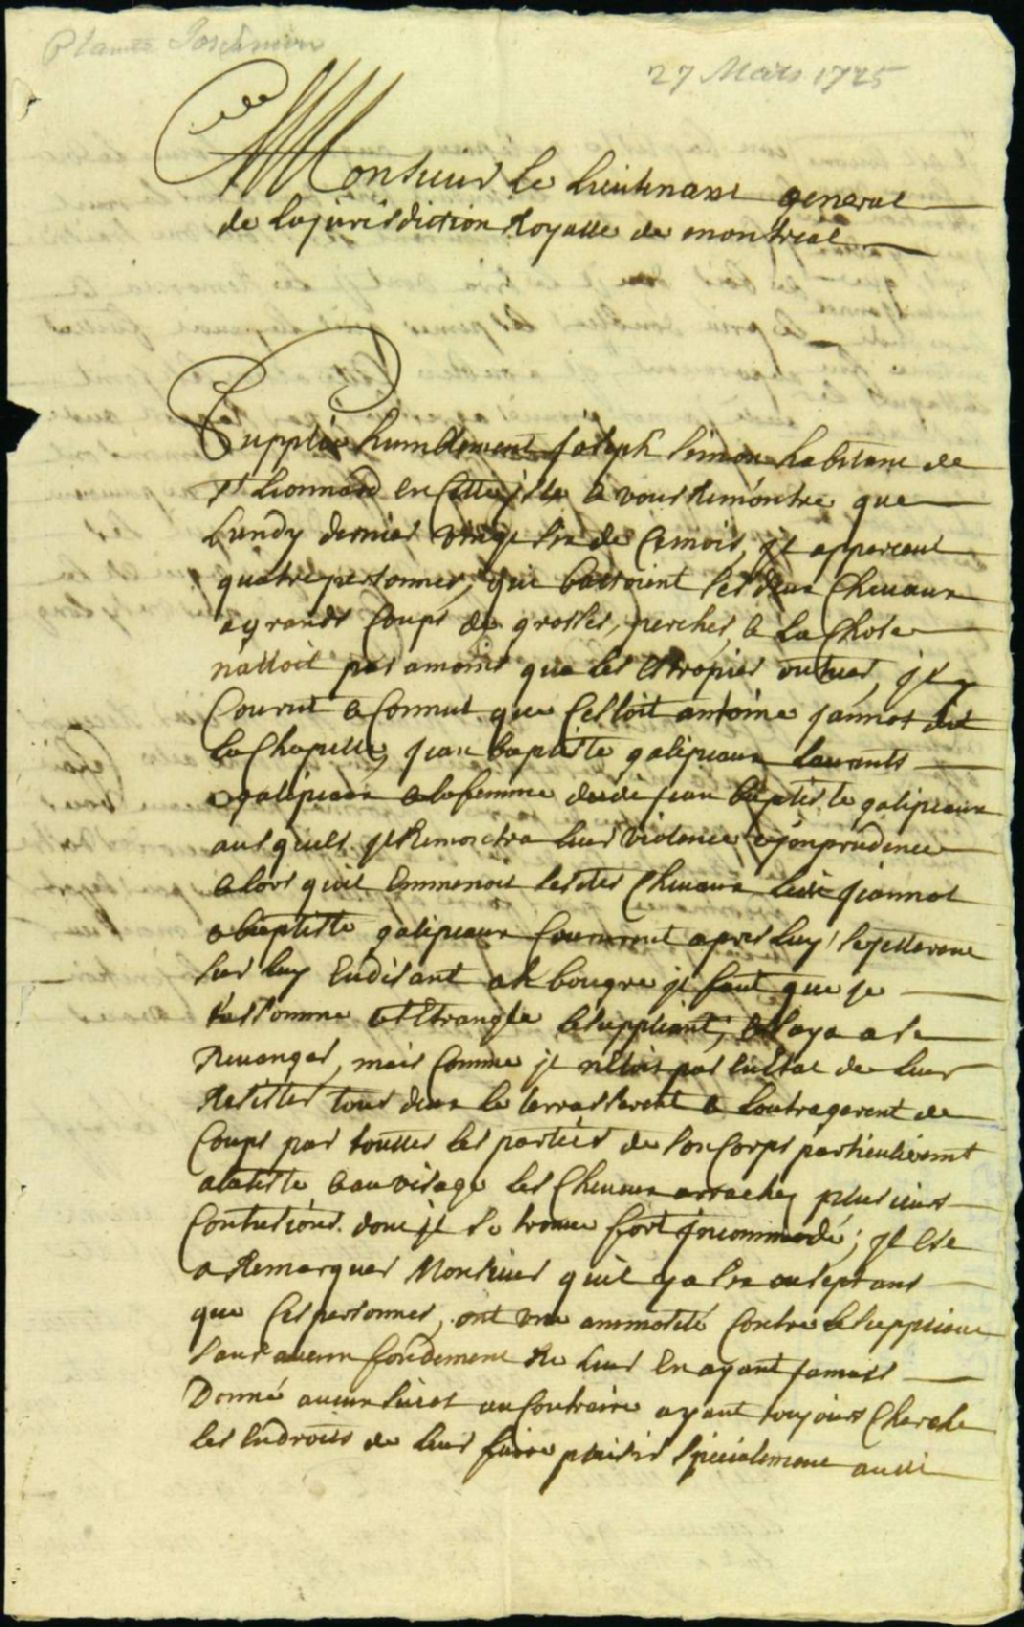 27 Mars 1725
Monsieur le Lieutenant general
de la jurisdiction Royalle de montreal
Supplie humblement joseph simon habitant de
St Lionnard en cette isle & vous Remontre que
Lundy dernier vingt six de ce mois, il apperceut
quatre personnes, qui battoient ses deux chevaux
a grands coups de grosses perches, & la chose
nalloit pas amoins que les estropier ou tuer, il y
Courut & Connut que Cestoit antoine jannot dit
la Chapelle, jean baptiste galipeaux
galipeaux & la femme dudit jean baptiste galipeaux
ausquels il Remontra leur violence & jmprudence
& lors quil Emmenoit lesdits Chevaux ledit jeannot
& baptiste galipeaux Coururent apres luy, se jetterent
sur luy En disant ah bougre il faut que je
tassomme & tEtrangle le suppliant, Essaya a se
Revanger, mais Comme il netoit pas En Etat de leur
Resister tous deux le terrasserent & loutragerent de
Coups par touttes les parties de son Corps particulierement
a la teste & au visage les Cheveux arrachez plusieurs
Contusions dont il se trouve fort jncommodé; il Est
a Remarquer Monsieur quil y a six ou sept ans
que Ces personnes, ont une animosité Contre le suppliant
sans aucun fondement ne leur En ayant jamais
Donné aucun sujet au Contraire ayant toujours Cherché
les Endroits de leur faire plaisir specialement audit